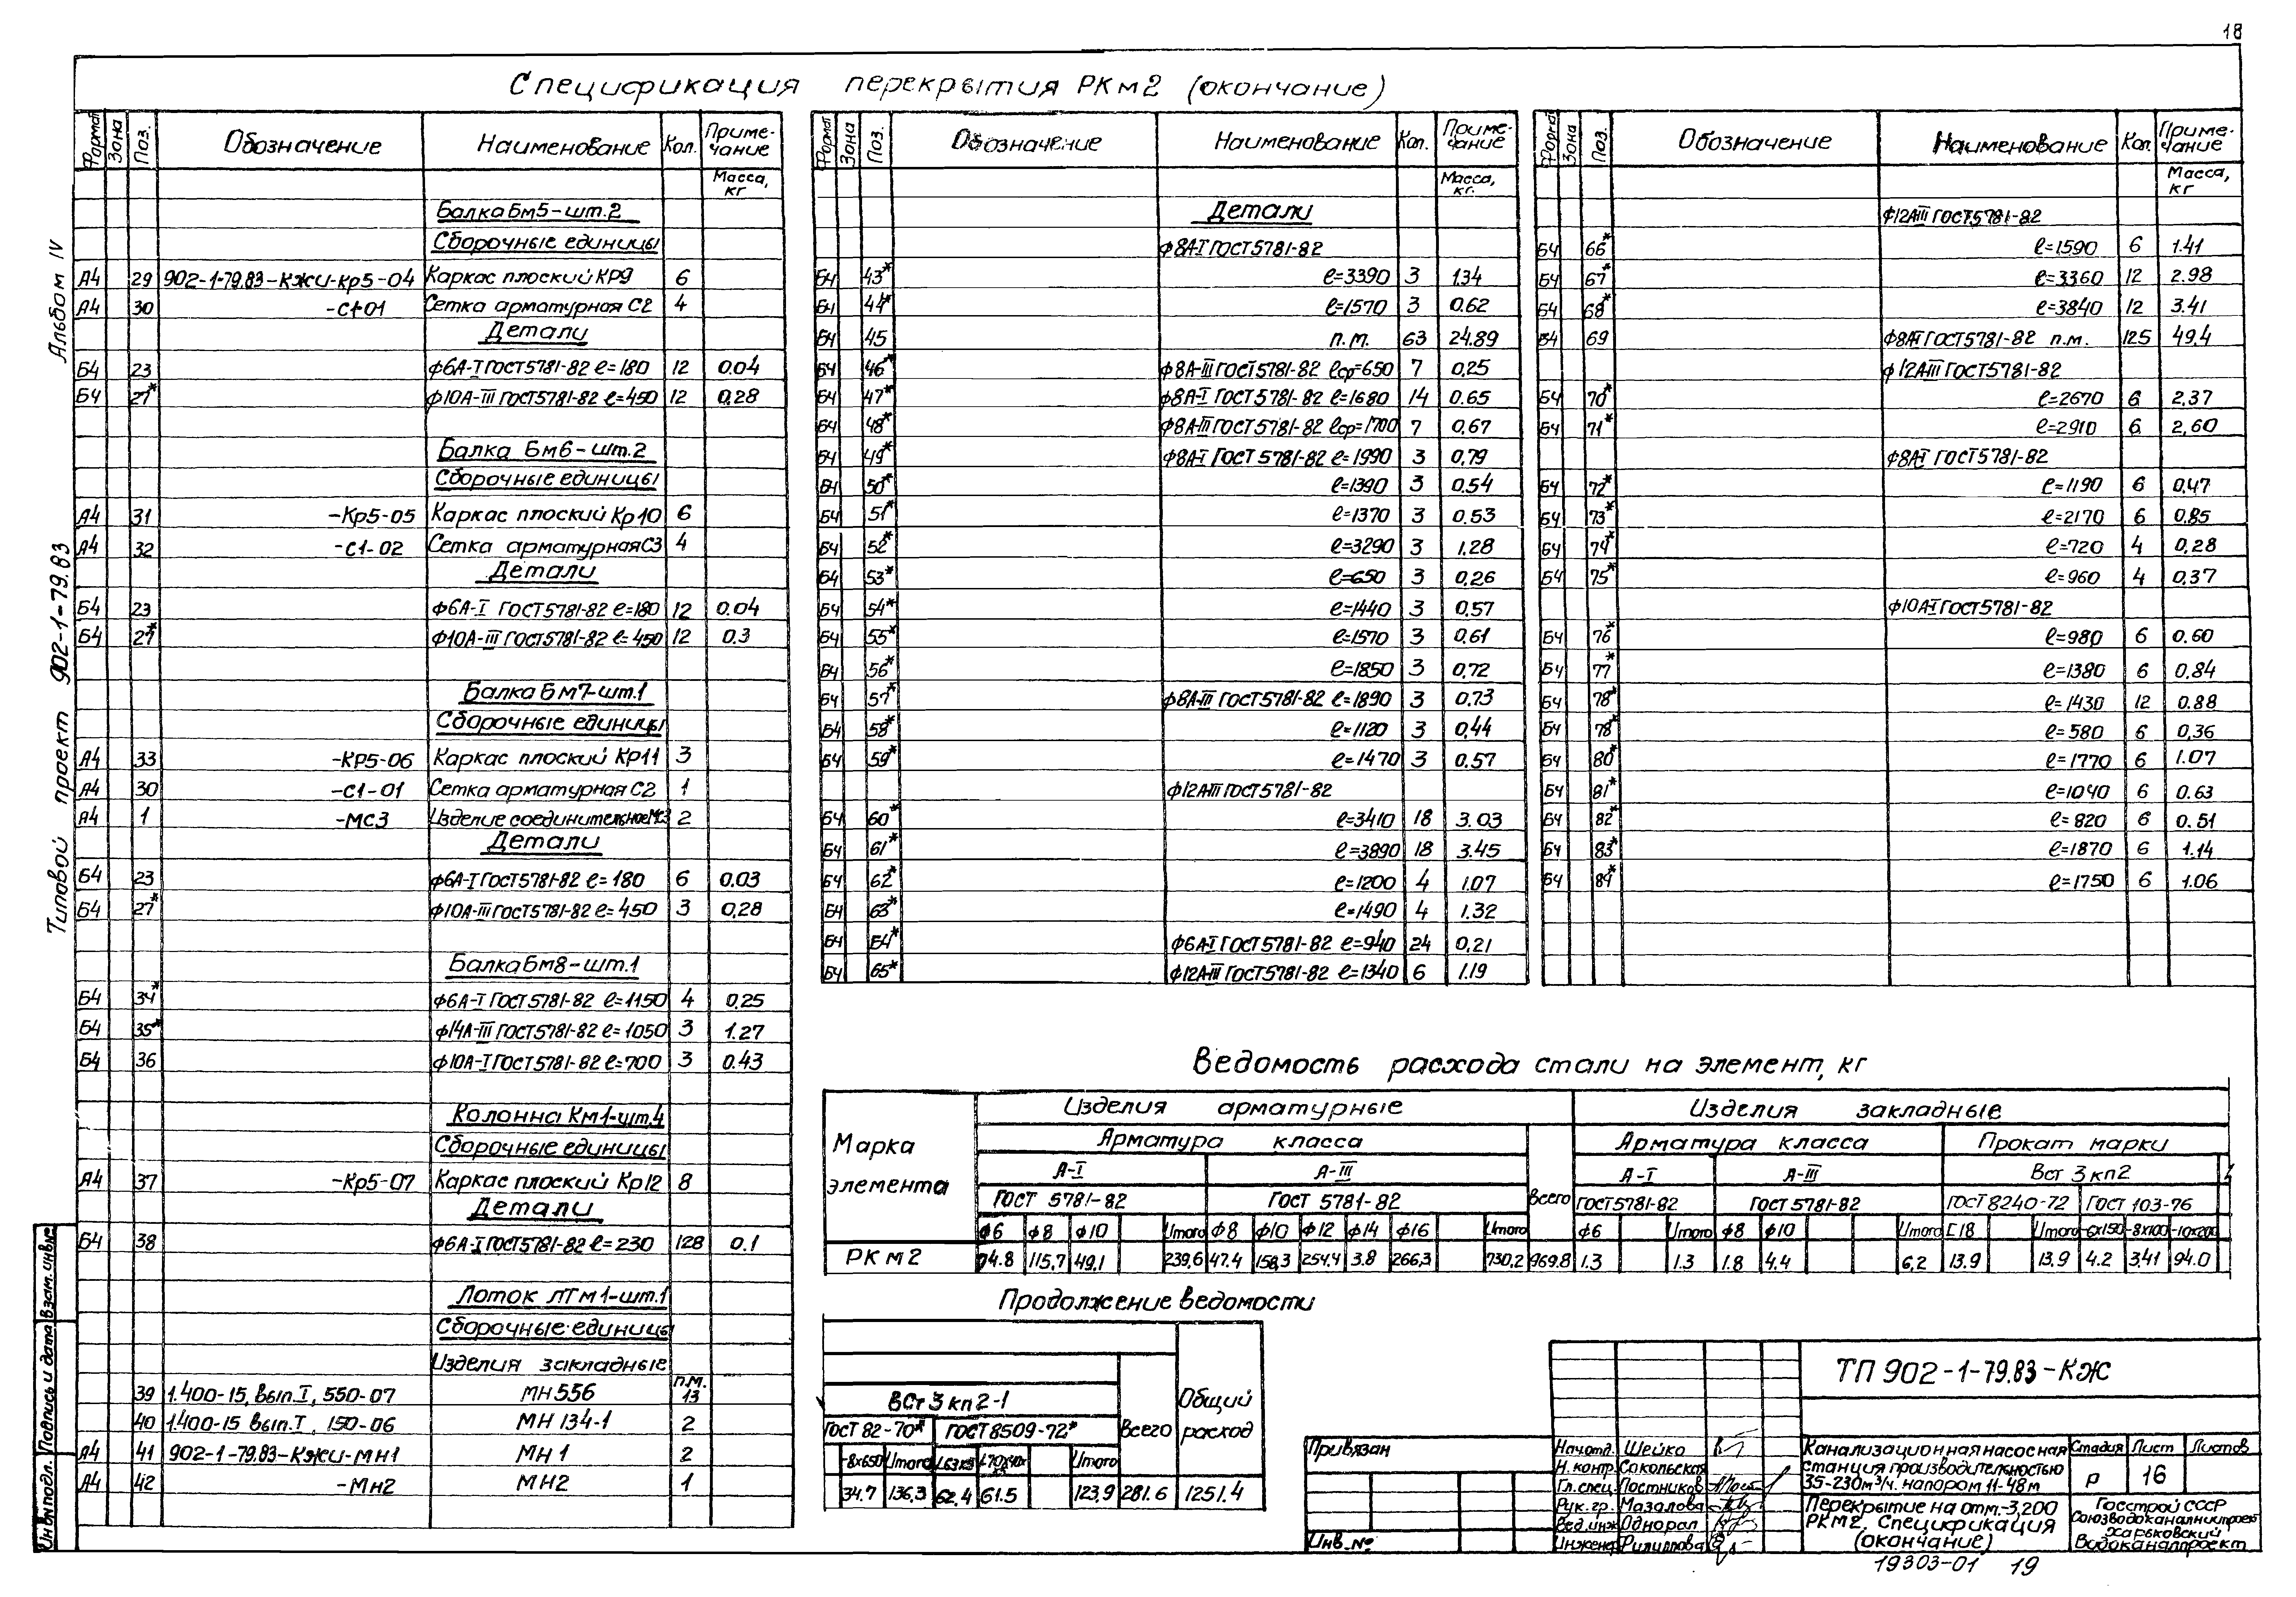 18
Спецификация перекрытия РКм2 (окончание)
Альбом IV
Типовой проект 902-1-79.83
Формат Зона Поз. Обозначение Наименование Кол. Приме-чание
Масса, кг
Балка Бм5-шт.2
Сборочные единицы
А4 29 902-1-79.83-КЖИ-Кр5-04 Каркас плоский КР9 6
А4 30 -С1-01 Сетка арматурная С2 4
Детали
Б4 23 ф6А-I ГОСТ5781-82 ℓ=180 12 0.04
Б4 27* ф10А-III ГОСТ5781-82 ℓ=450 12 0.28
Балка Бм6-шт.2
Сборочные единицы
А4 31 -Кр5-05 Каркас плоский Кр10 6
А4 32 -С1-02 Сетка арматурная С3 4
Детали
Б4 23 ф6А-I ГОСТ5781-82 ℓ=180 12 0.04
Б4 27* ф10А-III ГОСТ5781-82 ℓ=450 12 0.3
Балка Бм7-шт.1
Сборочные единицы
А4 33 -КР5-06 Каркас плоский Кр11 3
А4 30 -С1-01 Сетка арматурная С2 1
А4 1 -МС3 Изделие соединительное МС3 2
Детали
Б4 23 ф6А-I ГОСТ5781-82 ℓ=180 6 0.03
Б4 27* ф10А-III ГОСТ5781-82 ℓ=450 3 0,28
Балка Бм8-шт.1
Б4 34* ф6А-I ГОСТ5781-82 ℓ=1150 4 0.25
Б4 35* ф14А-III ГОСТ5781-82 ℓ=1050 3 1.27
Б4 36 ф10А-I ГОСТ5781-82 ℓ=700 3 0.43
Колонна Км1-шт.4
Сборочные единицы
А4 37 -Кр5-07 Каркас плоский Кр12 8
Детали
Б4 38 ф6А-I ГОСТ5781-82 ℓ=230 128 0.1
Лоток ЛТм1-шт.1
Сборочные единицы
Изделия закладные
39 1.400-15, вып.I, 550-07 МН556 п.м. 13
40 1.400-15 вып.I, 150-06 МН134-1 2
А4 41 902-1-79.83-КЖИ-МН1 МН1 2
А4 42 -Мн2 МН2 1
Формат Зона Поз. Обозначение Наименование Кол. Приме-чание
Масса, кг.
Детали
ф8А-I ГОСТ5781-82
Б4 43* ℓ=3390 3 1.34
Б4 44* ℓ=1570 3 0.62
Б4 45 п.м. 63 24.89
Б4 46* ф8А-III ГОСТ5781-82 ℓср=650 7 0,25
Б4 47* ф8А-I ГОСТ5781-82 ℓ=1680 14 0.65
Б4 48* ф8А-III ГОСТ5781-82 ℓср=1700 7 0,67
Б4 49* ф8А-I ГОСТ5781-82 ℓ=1990 3 0,79
Б4 50* ℓ=1390 3 0.54
Б4 51* ℓ=1370 3 0.53
Б4 52* ℓ=3290 3 1.28
Б4 53* ℓ=650 3 0,26
Б4 54* ℓ=1440 3 0.57
Б4 55* ℓ=1570 3 0.61
Б4 56* ℓ=1850 3 0,72
Б4 57* ф8А-III ГОСТ5781-82 ℓ=1890 3 0.73
Б4 58* ℓ=1120 3 0,44
Б4 59* ℓ=1470 3 0.57
ф12А-III ГОСТ5781-82
Б4 60* ℓ=3410 18 3.03
Б4 61* ℓ=3890 18 3.45
Б4 62* ℓ=1200 4 1.07
Б4 63* ℓ=1490 4 1.32
Б4 Б4* ф6А-I ГОСТ5781-82 ℓ=940 24 0,21
Б4 65* ф12А-III ГОСТ5781-82 ℓ=1340 6 1.19
Формат Зона Поз. Обозначение Наименование Кол. Приме-чание
Масса, кг
ф12АIII ГОСТ5781-82
Б4 66* ℓ=1590 6 1.41
Б4 67* ℓ=3360 12 2.98
Б4 68* ℓ=3840 12 3.41
Б4 69 ф8АI ГОСТ5781-82 п.м. 125 49,4
ф12АIII ГОСТ5781-82
Б4 70* ℓ=2670 6 2,37
Б4 71* ℓ=2910 6 2,60
ф8АI ГОСТ5781-82
Б4 72* ℓ=1190 6 0,47
Б4 73* ℓ=2170 6 0,85
Б4 74* ℓ=720 4 0,28
Б4 75* ℓ=960 4 0,37
ф10АI ГОСТ5781-82
Б4 76* ℓ=980 6 0.60
Б4 77* ℓ=1380 6 0.84
Б4 78* ℓ=1430 12 0.88
Б4 78* ℓ=580 6 0,36
Б4 80* ℓ=1770 6 1.07
Б4 81* ℓ=1040 6 0.63
Б4 82* ℓ=820 6 0.51
Б4 83* ℓ=1870 6 1.14
Б4 84* ℓ=1750 6 1.06
Ведомость расхода стали на элемент, кг
Марка элемента Изделия арматурные Изделия закладные
Арматура класса Всего Арматура класса Прокат марки
А-I А-III А-I А-III Вст 3 кп2
ГОСТ 5781-82 ГОСТ 5781-82 ГОСТ5781-82 ГОСТ5781-82 ГОСТ8240-72 ГОСТ 103-76
ф6 ф8 ф10 Итого ф8 ф10 ф12 ф14 ф16 Итого ф6 Итого ф8 ф10 Итого С18 Итого -6х150 -8х100 -10х200
РКм2 74.8 115,7 49,1 239,6 47.4 158,3 254,4 3.8 266,3 730,2 969.8 1.3 1.3 1.8 4.4 6,2 13.9 13.9 4.2 34.1 94.0
Продолжение ведомости
ВСт 3 кп 2-1 Всего Общий расход
ГОСТ 82-70* ГОСТ8509-72*
-8х650 Итого L63х5 Итого
34.7 136,3 62.4 61.5 123,9 281.6 1251.4
Привязан
Инв.№
ТП 902-1-79.83-КЖ
Нач.отд. Шейко
Н.контр. Сокольская
Гл.спец. Постников
Рук.гр. Мазалова
Вед.инж Однорал
Инженер Филиппова
Канализационная насосная станция производительностью 35-230м³/ч. напором 11-48м
Стадия Лист Листов
Р 16
Перекрытие на отм.-3,200
РКМ2. Спецификация
(окончание)
Госстрой СССР
Союзводоканалниипроект
Харьковский
Водоканалпроект
19303-01 19
Инв.№подл. Подпись и дата Взам.инв.№